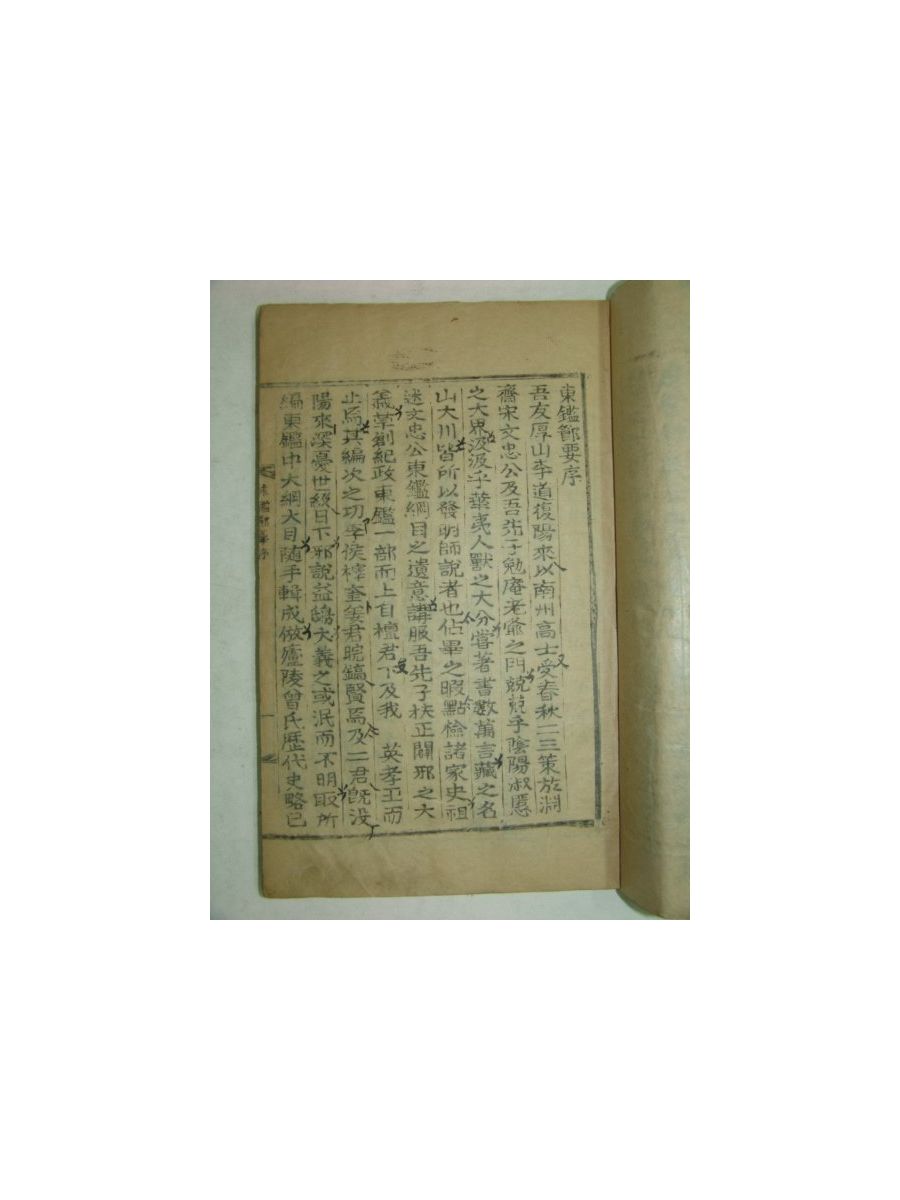 東鑑節要序
吾友厚山李道復陽來以南州高士受春秋二三策於淵
齋宋文忠公及吾先子勉庵老爺之門兢兢乎陰陽淑慝
之大界汲汲乎華夷人獸之大分嘗著書數萬言藏之名
山大川皆所以發明師說者也佔畢之暇點檢諸家史祖
述文忠公東鑑綱目之遺意講服吾先子扶正闢邪之大
義草創紀政東鑑一部而上自檀君下及我 英孝王而
止焉其編次之功李侯橰奎姜君晥鎬賢焉及二君旣沒
陽來深憂世級日下邪說益鴟大義之或泯而不明取所
編東鑑中大綱大目随手輯成倣廬陵曾氏歷代史略已